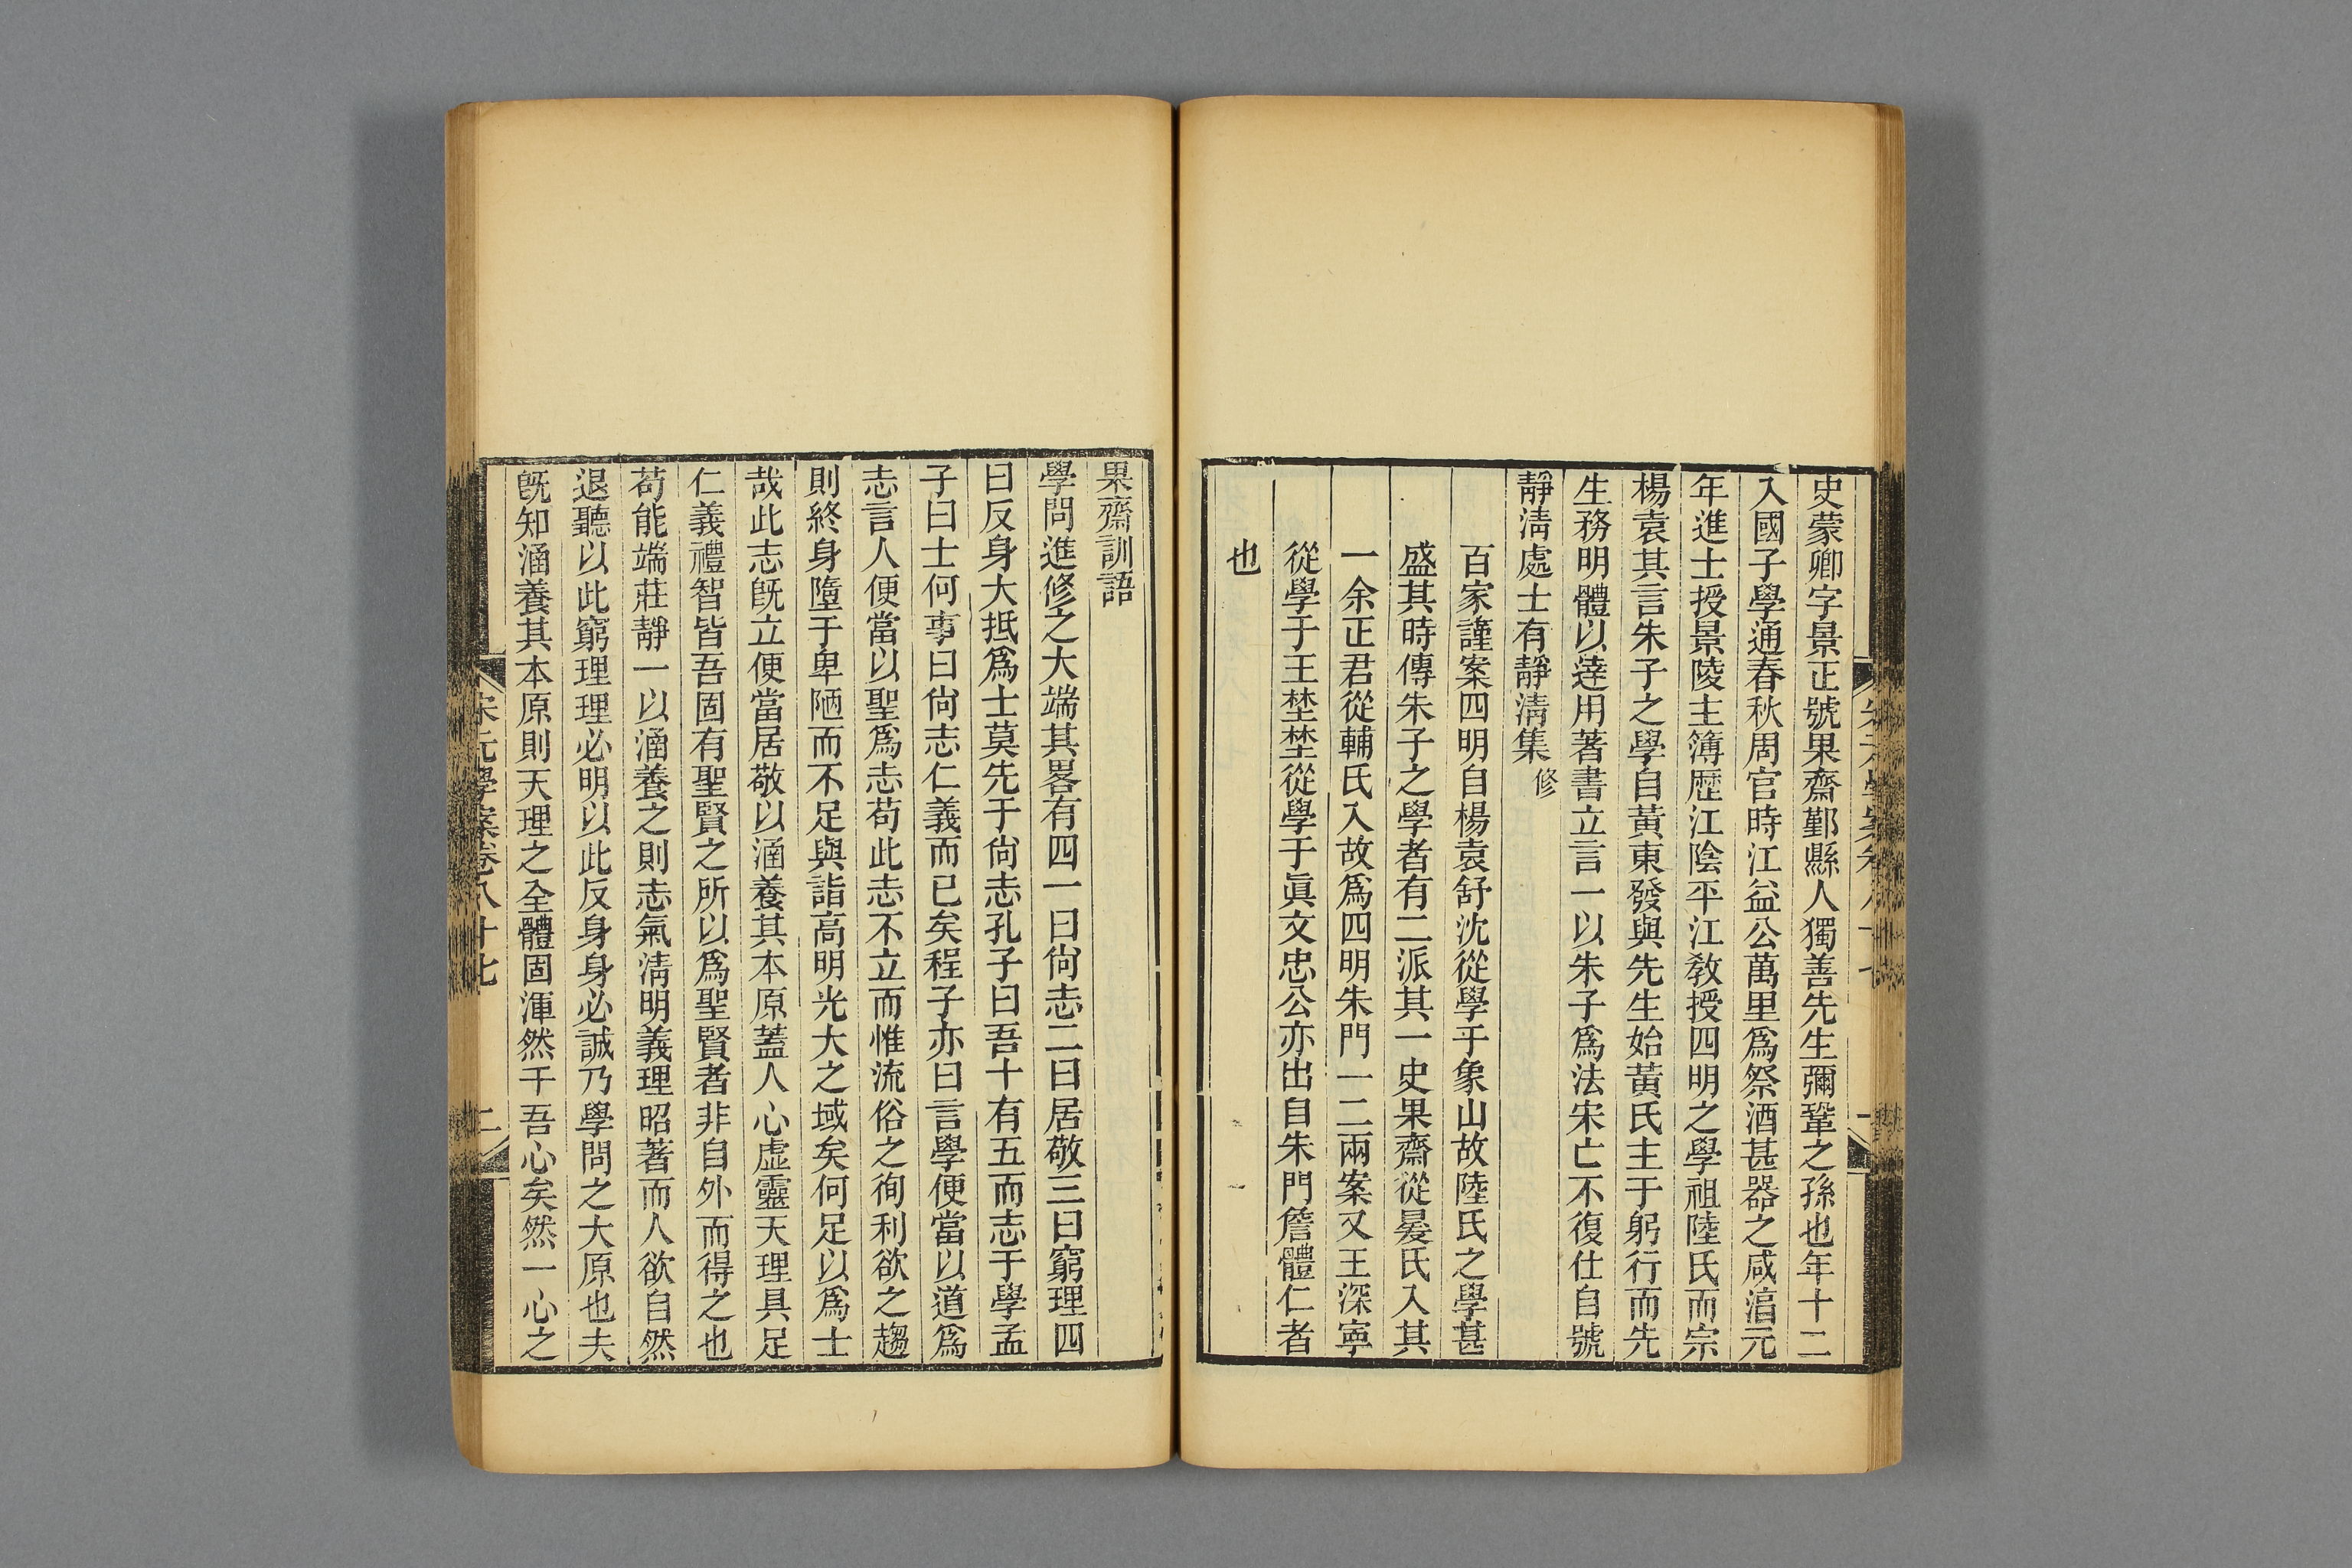 史蒙卿字景正號果齋鄞縣人獨善先生彌鞏之孫也年十二
入國子學通春秋周官時江益公萬里爲祭酒甚器之咸淳元
年進士授景陵主簿歷江陰平江敎授四明之學祖陸氏而宗
楊袁其言朱子之學自黃東發與先生始黃氏主于躬行而先
生務明體以達用著書立言一以朱子爲法宋亡不復仕自號
靜淸處士有靜淸集修
百家謹案四明自楊袁舒沈從學于象山故陸氏之學甚
盛其時傳朱子之學者有二派其一史果齋從㬊氏入其
一余正君從輔氏入故爲四明朱門一二兩案又王深寧
從學于王埜埜從學于眞文忠公亦出自朱門詹體仁者
也
果齋訓語
學問進修之大端其畧有四一曰尙志二曰居敬三曰窮理四
曰反身大抵爲士莫先于尙志孔子曰吾十有五而志于學孟
子曰士何事曰尙志仁義而已矣程子亦曰言學便當以道爲
志言人便當以聖爲志苟此志不立而惟流俗之徇利欲之趨
則終身墮于卑陋而不足與詣高明光大之域矣何足以爲士
哉此志旣立便當居敬以涵養其本原蓋人心虛靈天理具足
仁義禮智皆吾固有聖賢之所以爲聖賢者非自外而得之也
苟能端莊靜一以涵養之則志氣淸明義理昭著而人欲自然
退聽以此窮理理必明以此反身身必誠乃學問之大原也夫
旣知涵養其本原則天理之全體固渾然于吾心矣然一心之
宋元學案卷八十七
二